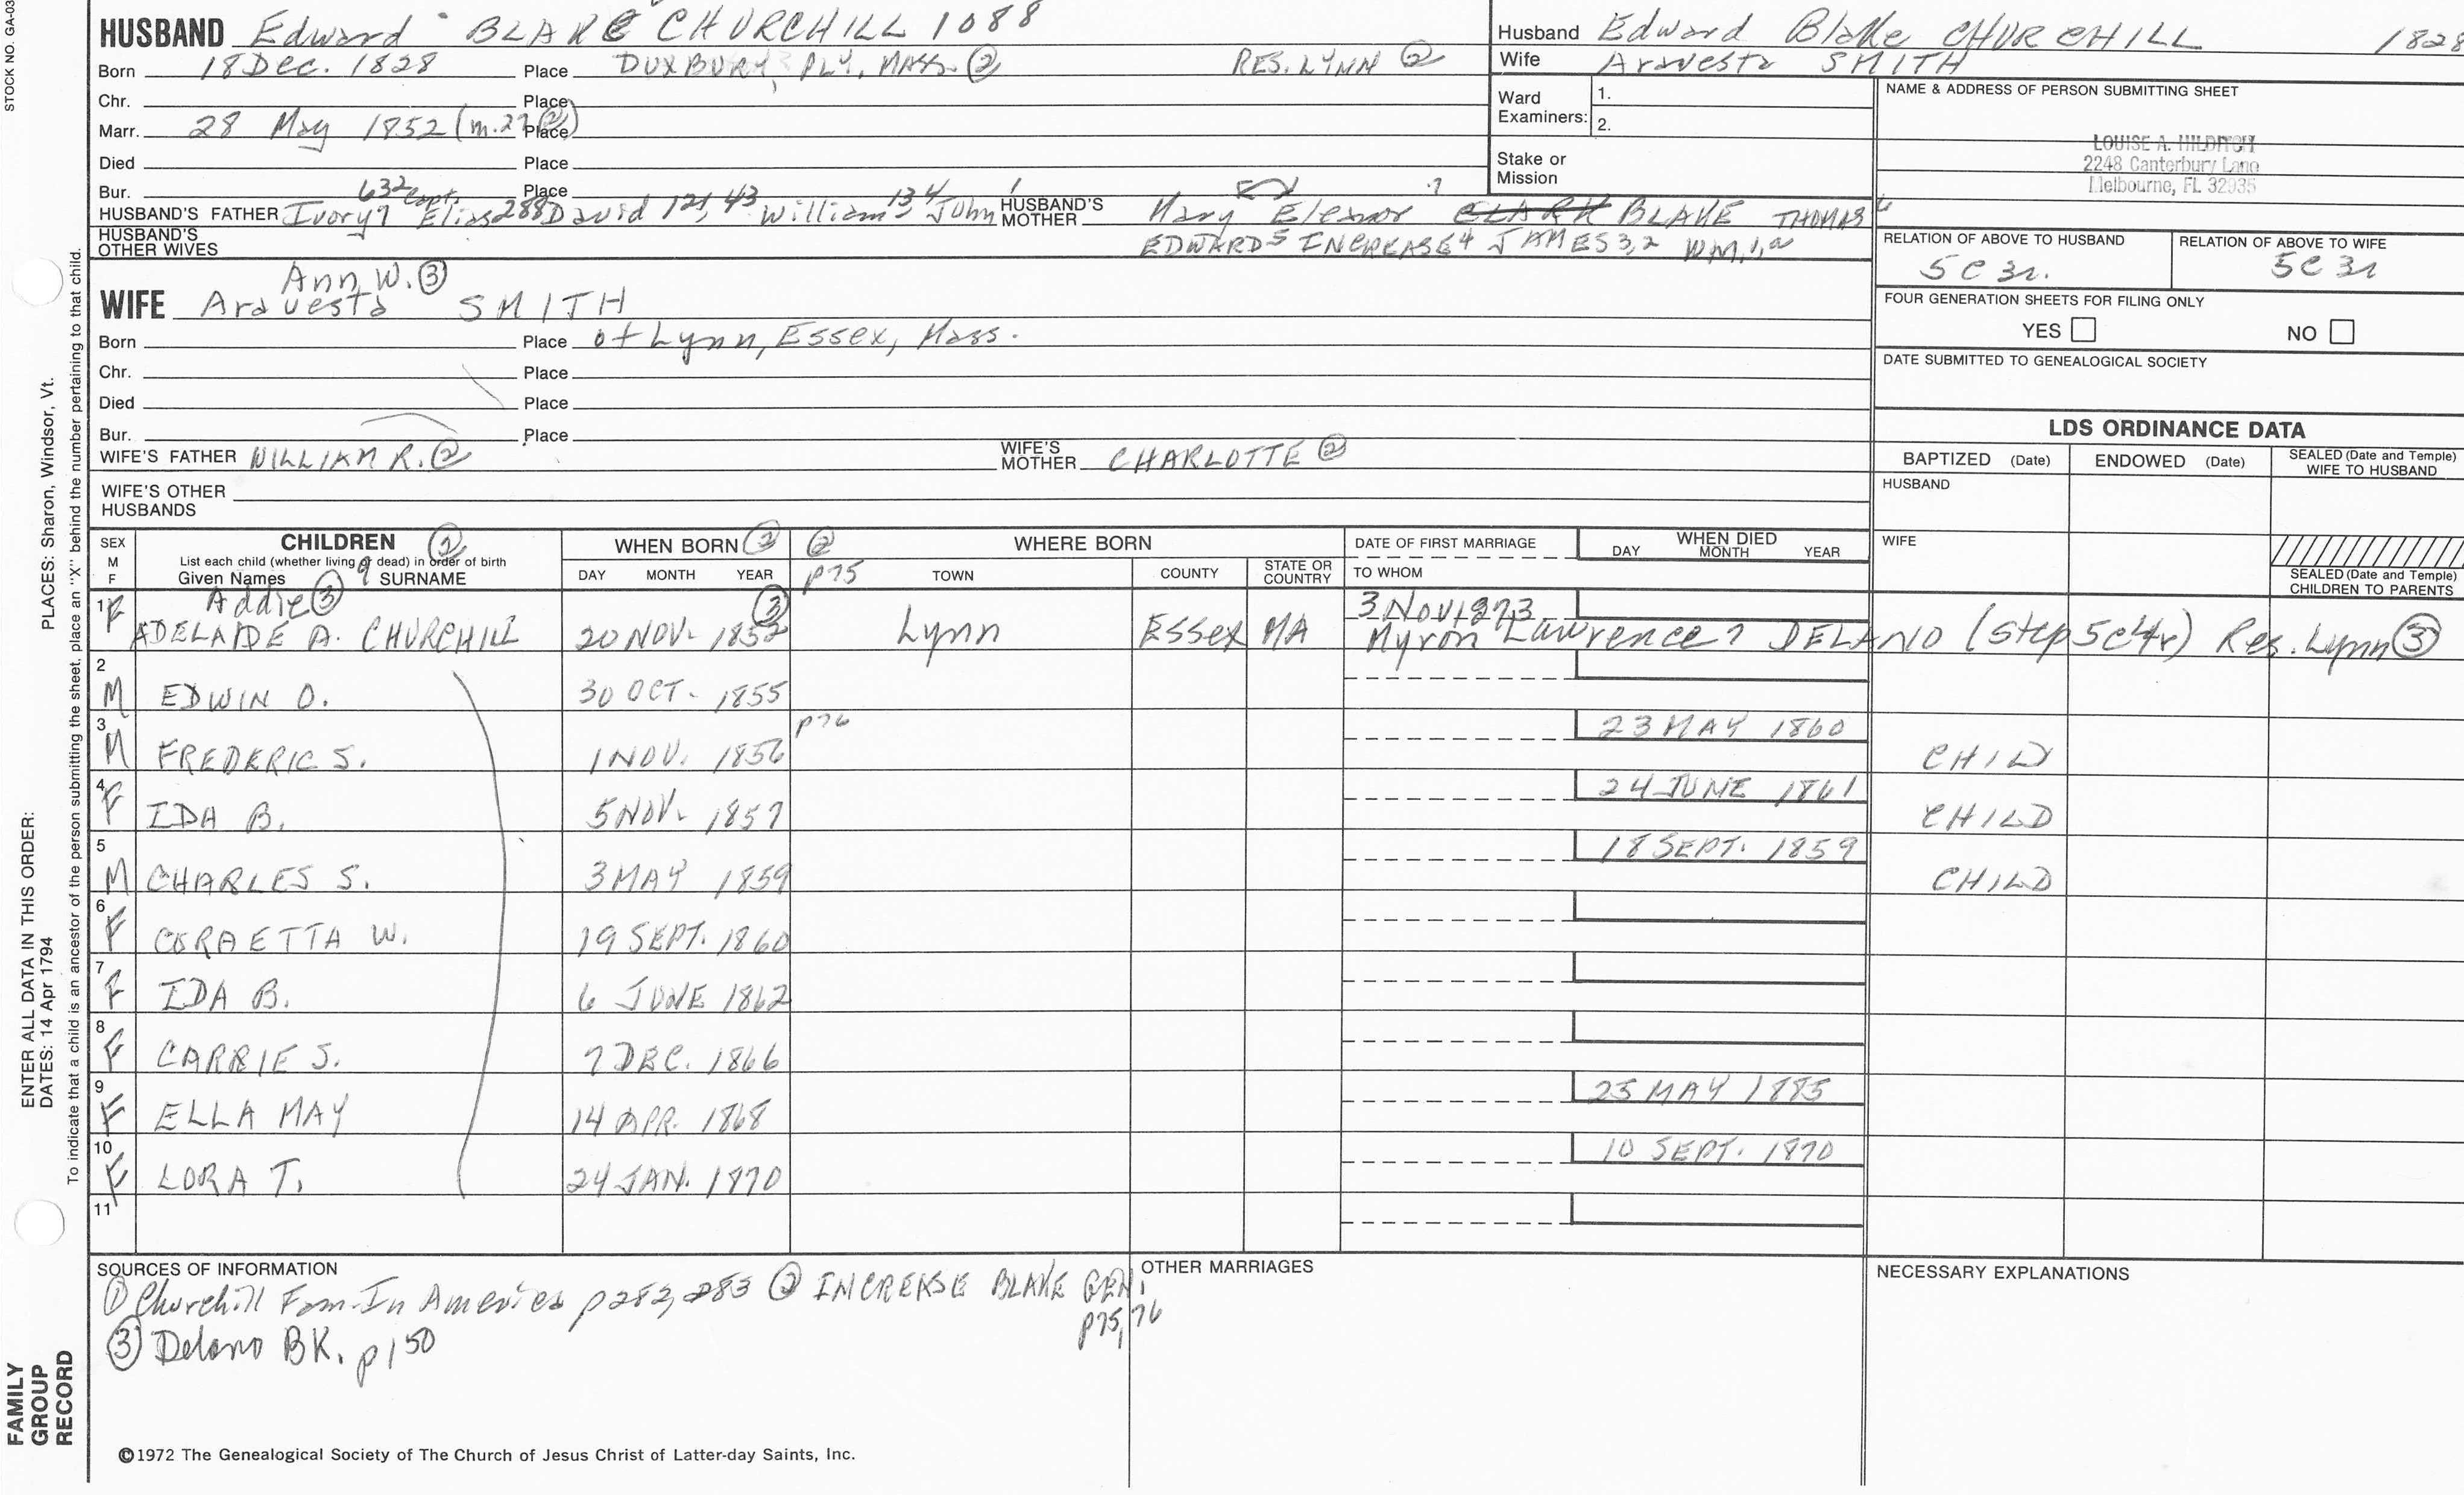 STOCK NO. GA-03
HUSBAND Edward BLAKE CHURCHILL 1088
Born 18 Dec. 1828 Place DUXBURY, PLY, MASS. ② RES. LYNN ②
Chr. Place
Marr. 28 May 1852 (m. 27 ②) Place
Died Place
Bur. Place
HUSBAND'S FATHER Ivory7 632 Capt. Elias 288 David 121, 43 William 13, 4 John HUSBAND'S MOTHER Mary Elenor CLARK BLAKE THOMAS 6
HUSBAND'S OTHER WIVES EDWARD5 INCREASE4 JAMES3,2 WM.1,a
Ann W. ③
WIFE Aravesta SMITH
Born Place of Lynn, Essex, Mass.
Chr. Place
Died Place
Bur. Place
WIFE'S FATHER WILLIAM R. ② WIFE'S MOTHER CHARLOTTE ②
WIFE'S OTHER HUSBANDS
Husband Edward Blake CHURCHILL 1828
Wife Aravesta SMITH
Ward Examiners: 1.
2.
Stake or Mission
NAME & ADDRESS OF PERSON SUBMITTING SHEET
LOUISE A. HILDITCH
2248 Canterbury Lane
Melbourne, FL 32935
RELATION OF ABOVE TO HUSBAND RELATION OF ABOVE TO WIFE
5C3r. 5C3r
FOUR GENERATION SHEETS FOR FILING ONLY
YES NO
DATE SUBMITTED TO GENEALOGICAL SOCIETY
LDS ORDINANCE DATA
BAPTIZED (Date) ENDOWED (Date) SEALED (Date and Temple) WIFE TO HUSBAND
HUSBAND
WIFE
SEALED (Date and Temple) CHILDREN TO PARENTS
SEX M F
CHILDREN ②
List each child (whether living or dead) in order of birth
Given Names 9 SURNAME
WHEN BORN ②
DAY MONTH YEAR
② WHERE BORN
p75 TOWN COUNTY STATE OR COUNTRY
DATE OF FIRST MARRIAGE
TO WHOM
WHEN DIED
DAY MONTH YEAR
Addie ③ ③ 3 NOV 1873
1 F ADELAIDE A. CHURCHILL 20 NOV. 1852 Lynn Essex MA Myron Lawrence7 DELANO (step5c4r) Res. Lynn ③
2 M EDWIN O. 30 OCT. 1855
3 M FREDERIC S. 1 NOV. 1856 p76 23 MAY 1860 CHILD
4 F IDA B. 5 NOV. 1857 24 JUNE 1861 CHILD
5 M CHARLES S. 3 MAY 1859 18 SEPT. 1859 CHILD
6 F CORAETTA W. 19 SEPT. 1860
7 F IDA B. 6 JUNE 1862
8 F CARRIE S. 7 DEC. 1866
9 F ELLA MAY 14 APR. 1868 25 MAY 1885
10 F LORA T. 24 JAN. 1870 10 SEPT. 1870
11
SOURCES OF INFORMATION
① Churchill Fam. In America p282, 283 ② INCREASE BLAKE GEN.
p75, 76
③ Delano BK. p150
OTHER MARRIAGES
NECESSARY EXPLANATIONS
©1972 The Genealogical Society of The Church of Jesus Christ of Latter-day Saints, Inc.
FAMILY GROUP RECORD
ENTER ALL DATA IN THIS ORDER:
DATES: 14 Apr 1794
PLACES: Sharon, Windsor, Vt.
To indicate that a child is an ancestor of the person submitting the sheet, place an "X" behind the number pertaining to that child.